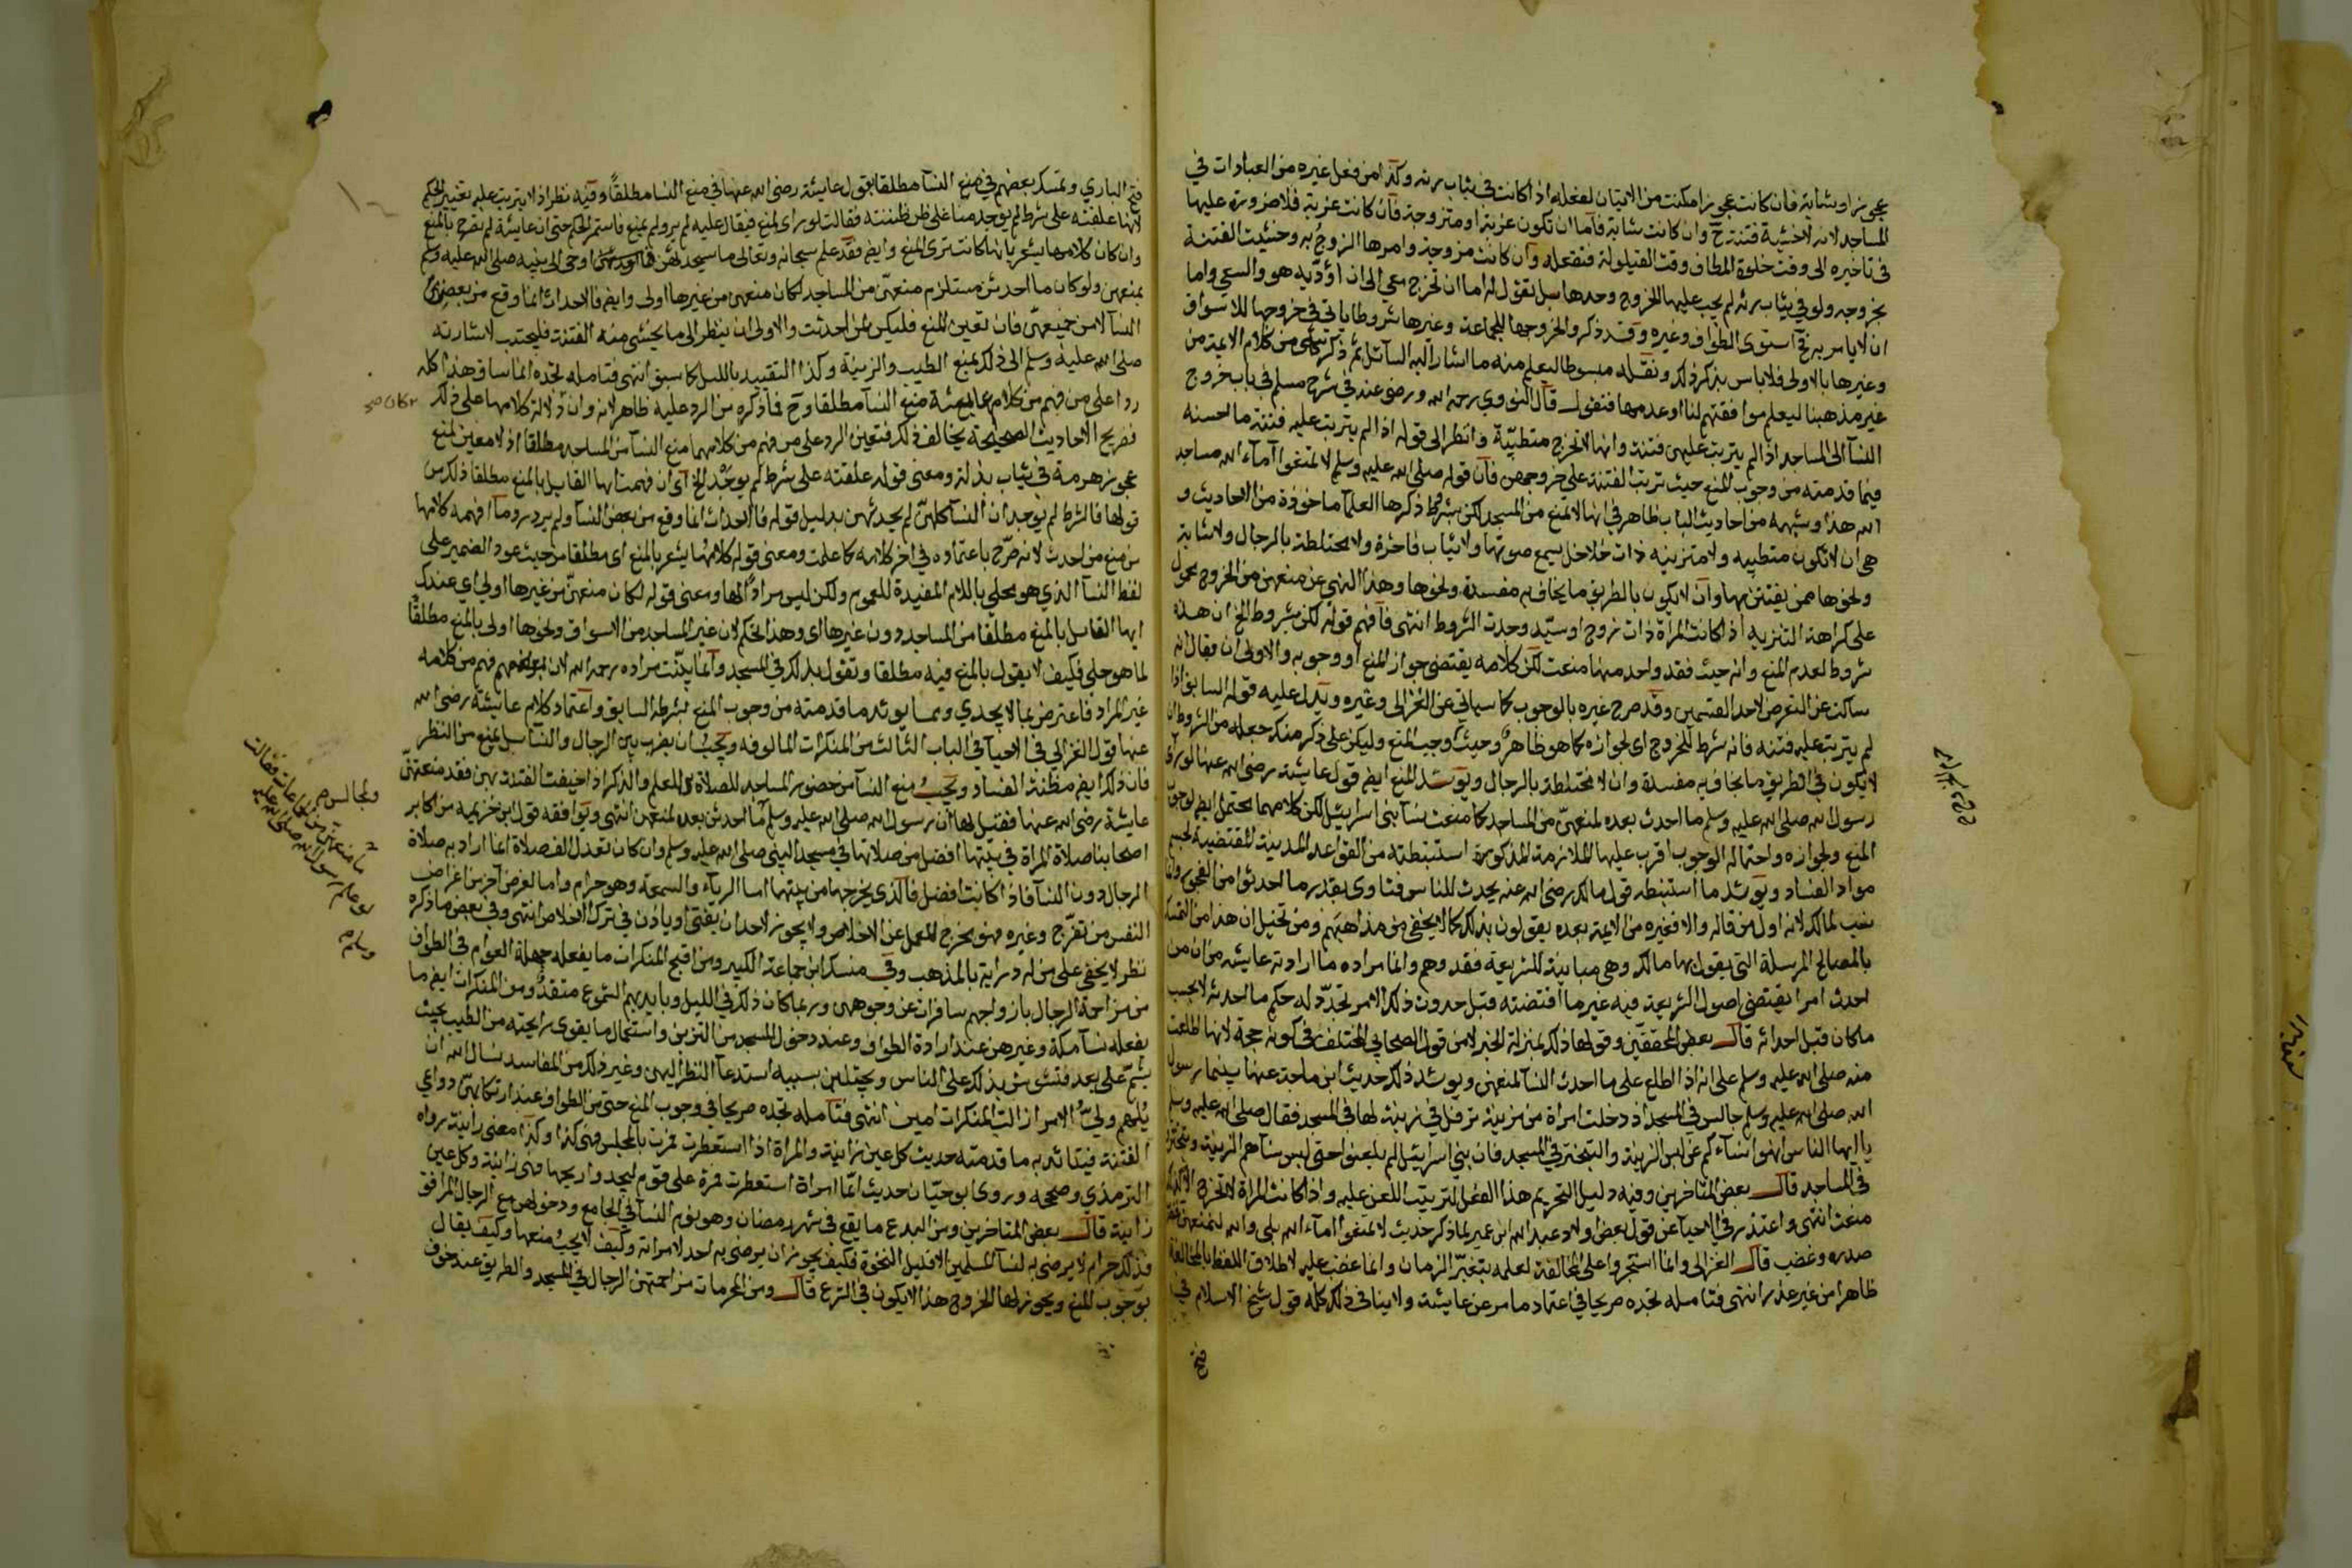 عجوزا وشابة فان كانت عجوزا مكنت من الاتيان لفعله اذا كانت في ثياب رثة وكذا من فعل غيره من العبادات في
المساجد لانه لا خشية فتنة ح وان كانت شابة فاما ان تكون عزبة او متزوجة فان كانت عزبة فلا ضرورة عليها
في تاخيره الى وقت خلوة المطاف وقت القيلولة فتفعله وان كانت مزوجة وامرها الزوج به وخشيت الفتنة
بخروجه ولو في ثياب رثة لم يجب عليها الخروج وحدها بل تقول له اما ان تخرج معي الى ان اؤديه هو والسعي واما
ان لا ياس به فتح استوى الطواف وغيره وقد ذكروا لخروجها للجماعة وغيرها شروطا ياتي في خروجها للاسواق
وغيرها بالاولى فلا باس بذكر ذلك ونقله مبسوطا ليعلم منه ما اشار اليه السائل ثم ذكر شئ من كلام الايمة من
غير مذهبنا ليعلم موافقتهم لنا او عدمها فنقول قال النووي رحمه الله ورضي عنه في شرح مسلم في باب خروج
النسآ الى المساجد اذا لم يترتب عليهن فتنة وانها لا تخرج متطيبة وانظر الى قوله اذا لم يترتب عليه فتنة ما احسنه
فيما قدمته من وجوب المنع حيث ترتب الفتنة على خروجهن فان قوله صلى الله عليه وسلم لا تمنعوا آماء الله مساجد
الله هذا وشبهه من احاديث الباب ظاهر في انها لا تمنع من المسجد لكن بشروط ذكرها العلمآ ماخوذة من الاحاديث و
هي ان لا تكون متطيبه ولا متزينه ذات خلاخل يسمع صوتها ولا ثياب فاخرة ولا مختلطة بالرجال ولا شابة
ونحوها ممن يفتتن بها وان لا يكون بالطريق ما يخاف به مفسدة ونحوها وهذا النهي عن منعهن من الخروج محمول
على كراهة التنزيه اذا كانت المراة ذات زوج او سيد وحدت الشروط انتهى فآفهم قوله لكن بشروط الخ ان هذه
شروط لعدم المنع وانه حيث فقد واحد منها منعت لكن كلامه يقتضي جواز المنع او وجوبه والاولى ان فقال انه
ساكت عن التعرض لاحد القسمين وقد صرح غيره بالوجوب كما سياتي عن الغزالى وغيره ويدل عليه قوله السابق اذا
لم يترتب عليه فتنة فانه شرط للخروج اي لجوازه كما هو ظاهر وحيث وجب المنع وليكن على ذكر منك جعله من الشروط ان
لا يكون في الطريق ما يخاف به مفسدة وان لا مختلطة بالرجال ويوشد للمنع ايضم قول عايشة رضي الله عنها لوراى
رسول الله صلى الله عليه وسلم ما احدث بعده لمنعهن من المساجد كما منعت نسآ بني اسرائيل لكن كلامهما محتمل ايضم لوجوب
المنع ولجوازه واحتماله الوجوب اقرب عليها الملازمة المذكورة استنبطته من القواعد المدينية المقتضية لحسم
مواد الفساد ويوشد ما استنبطه قول مالك رضي الله عنه يحدث للناس فتاوى بقدر ما احدثوا من الفجور وانما
نسب لمالك لانه اول من قاله والا فغيره من الايمة بعده يقولون بذلك كما لا يخفى من مذاهبهم ومن تخيل ان هذا من التمسك
بالمصالح المرسلة التي يقول بها مالك وهي مباينة للشريعة فقد وهم وانما مراده ما ارادته عايشه من ان من
احدث امرا يقتضي اصول الشريعة فيه غير ما اقتضته قبل حدوث ذلك الامر تجدد له حكم ما احدثه لا بحسب
ما كان قبل احداثه قال بعض المحققين وقولها ذلك بمنزلة الخبر لا من قول الصحابي المختلف في كونه حجة لانها اطلعت
منه صلى الله عليه وسلم على انه اذا اطلع على ما احدث النسآ لمنعهن ويوشد ذلك حديث ابن ماجة عنها بينما رسول
الله صلى الله عليه وسلم جالس في المسجد اذ دخلت امراة من مزينة ترفل في زينة لها في المسجد فقال صلى الله عليه وسلم
يا ايها الناس انهوا نسآءكم عن لبس الزينة والتبختر في المسجد فان بني اسرائيل لم يلعنوا حتى لبس نسآهم الزينة وتبختروا
في المساجد قال بعض المتاخرين وفيه دليل التحريم هذا الفعل لترتيب اللعن عليه واذا كانت المراة لا تخرج الا كذلك
منعت انتهى واعتذر في الاحيآ عن قول بعض اولاد عبد الله ابن عمر لما ذكر حديث لا تمنعوا امآء الله بلى والله لنمنعهن فضرب
صدره وغضب قال الغزالى وانما استجروا على المخالفة لعلمه بتغير الزمان وانما غضب عليه لاطلاق اللفظ بالمخالفة
ظاهرا من غير عذر انتهى فتامله تجده صريحا في اعتماد ما مر عن عايشة ولا ينافي ذلك كله قول شيخ الاسلام في
فتح
فتح الباري وتمسك بعضهم في منع النسآ مطلقا بقول عايشة رضي الله عنها في منع النسا مطلقا وفيه نظر اذ لا يترتب عليه تغيير الحكم
لانها علقته على شرط لم يوجد منا على ظن ظننته فقالت لوراى لمنع فيقال عليه لم ير ولم يمنع فاستمر الحكم حتى ان عايشة لم تصرح بالمنع
وان كان كلامها يشعر بانها كانت ترى المنع وايضم فقد علم سبحانه وتعالى ما سيحدثن فما اوحى الى نبيه صلى الله عليه وسلم
بمنعهن ولو كان ما احدثن مستلزم منعهن من المساجد لكان منعهن من غيرها اولى وايضم فالاحداث انما وقع من بعض
النسآ لا من جميعهن فان تعين المنع فليكن لمن احدثت والاولى ان ينظر الى ما يخشى منه الفتنة فليجتنب لاشارته
صلى الله عليه وسلم الى ذلك بمنع الطيب والزينة وكذا التقييد بالليل كما سبق انتهى فتامله تجده انما ساق هذا كله
ردا على من فهم من كلام عايشة منع النسآ مطلقا وح فما ذكره من الرد عليه ظاهر لانه وان دلالة كلامها على ذلك
فصريح الاحاديث الصحيحة يخالف ذلك فتعين الرد على من فهم من كلامها منع النسآ من المساجد مطلقا اذ لا معين لمنع
عجوز هرمة في ثياب بذلة ومعنى قوله علقته على شرط لم يوجد الخ اى ان فهمت ايها القايل بالمنع مطلقا ذلك من
قولها فالشرط لم يوجد ان النسآ كلهن لم يحدثهن بدليل قوله فالاحداث انما وقع من بعض النسآ ولم يرد رد ما افهمه كلامها
من منع من احدث لانه صرح باعتماده في اخر كلامه كما علمت ومعنى قوله كلامها يشعر بالمنع اى مطلقا من حيث عود الضمير على
لفظ النسآ الذي هو محلي باللام المفيدة للعموم ولكن ليس مرادا لها ومعنى قوله لكان منعهن من غيرها اولى اي عندك
ايها القايل بالمنع مطلقا من المساجد دون غيرها اى وهذا الحكم لان غير المساجد من الاسواق ونحوها اولى بالمنع مطلقا
لما هو جلي فكيف لا يقول بالمنع فيه مطلقا وتقول بذلك في المسجد وانما بينت مراده رحمه الله لان بعضهم فهم من كلامه
غير المراد فاعترض بما لا يجدي ومما يوئد ما قدمته من وجوب المنع بشرطه السابق واعتماد كلام عايشة رضي الله
عنها قول الغزالي في الاحيآ في الباب الثالث من المنكرات المالوفه ويجب ان يضرب بين الرجال والنسآ بل يمنع من النظر
فان ذلك ايضم مظنة الفساد ويجب منع النسآ من حضور المساجد للصلاة والعلم والذكر اذا خيفت الفتنة بهن فقد منعتهن
عايشة رضي الله عنها فقيل لها ان رسول الله صلى الله عليه وسلم ما احدثن بعده لمنعهن انتهى ويوافقه قول ابن خزيمه من اكابر
اصحابنا صلاة المراة في بيتها افضل من صلاتها في مسجد النبي صلى الله عليه وسلم وان كان تعدل الف صلاة انما اراد به صلاة
الرجال دون النسآ فاذا كانت افضل فالذي يخرجها من بيتها اما الريآء والسمعة وهو حرام واما لغرض آخر من اغراض
النفس من تفرج وغيره فهو يخرج العمل عن الاخلاص ولا يجوز لاحد ان يفتى او ياذن في ترك الاخلاص انتهى وفي بعض ما ذكره
نظر لا يخفى على من له دراية بالمذهب وفي منسك ابن جماعة الكبير ومن اقبح المنكرات ما يفعله جهلة العوام في الطواف
من مزاحمة الرجال بازواجهم سافرات عن وجوههن وربما كان ذلك في الليل وبايديهم الشموع متقدة ومن المنكرات ايضم ما
يفعله نسآ مكة وغيرهن عند ارادة الطواف وعند دخول المسجد من التزين واستعمال ما يقوى رايحته من الطيب بحيث
يشم على بعد فتشوش بذلك على الناس ويجتلبن بسببه استدعآ النظر اليهن وغير ذلك من المفاسد نسال الله ان
يلهم ولي الامر ازالة المنكرات امين انتهى فتامله تجده صريحا في وجوب المنع حتى من الطواف عند ارتكابهن دواعي
الفتنة فيتائد به ما قدمته حديث كل عين زانية والمراة اذا استعطرت فمرت بالمجلس فهي كذا وكذا معنى زانية رواه
الترمذي وصححه وروى ابو حيان حديث ايما امراة استعطرت فمرت على قوم ليجدوا ريحها فهى زانية وكل عين
زانية قال بعض المتاخرين ومن البدع ما يقع في شهر رمضان وهو نوم النسآ في الجامع ودخولهن مع الرجال المرافق
فذلك حرام لا يرضى به لنسآ المسلمين الا قليل النخوة فكيف يجوز ان يرضى به احد لامراته وكيف لا يجب منعها وكيف يقال
بوجوب المنع ويجوز لها الخروج هذا لا يكون في الشرع قال ومن المحرمات مزاحمتهن الرجال في المسجد والطريق عند خوف
كان صح
ومجالس صح
ما منعهن من الجماعات فقالت
لو علم رسول الله صلى الله عليه
وسلم